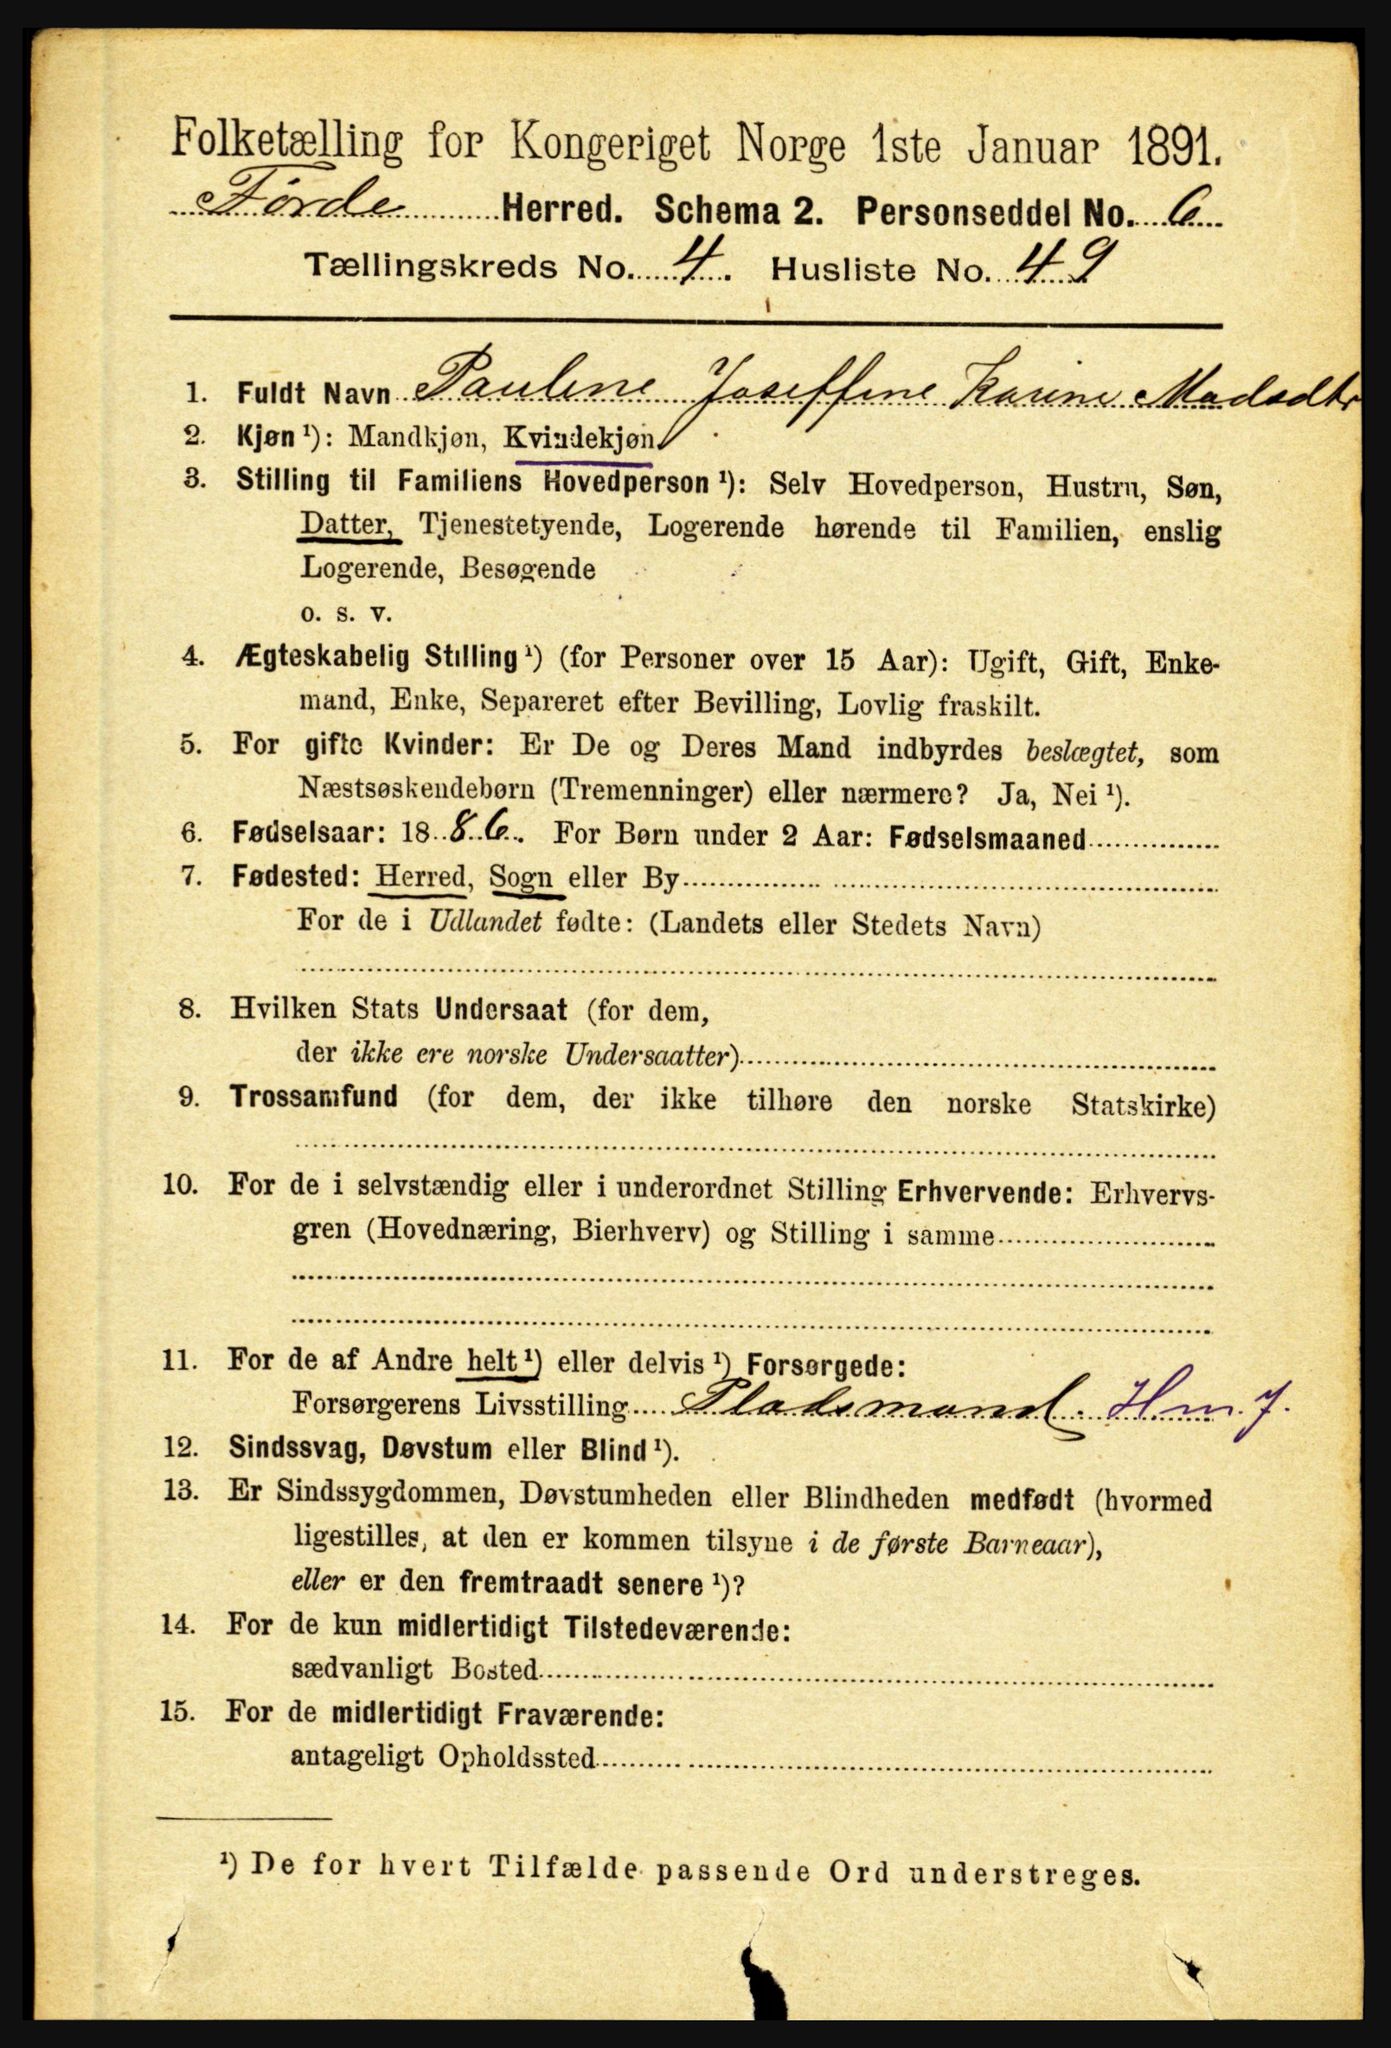 Folketælling for Kongeriget Norge 1ste Januar 1891.
Førde Herred. Schema 2. Personseddel No. 6
Tællingskreds No. 4. Husliste No. 49
1. Fuldt Navn Pauline Joseffine Karine Madsdtr
2. Kjøn ¹): Mandkjøn, Kvindekjøn.
3. Stilling til Familiens Hovedperson ¹): Selv Hovedperson, Hustru, Søn,
Datter, Tjenestetyende, Logerende hørende til Familien, enslig
Logerende, Besøgende
o. s. v.
4. Ægteskabelig Stilling ¹) (for Personer over 15 Aar): Ugift, Gift, Enke-
mand, Enke, Separeret efter Bevilling, Lovlig fraskilt.
5. For gifte Kvinder: Er De og Deres Mand indbyrdes beslægtet, som
Næstsøskendebørn (Tremenninger) eller nærmere? Ja, Nei ¹).
6. Fødselsaar: 1886. For Børn under 2 Aar: Fødselsmaaned
7. Fødested: Herred, Sogn eller By
For de i Udlandet fødte: (Landets eller Stedets Navn)
8. Hvilken Stats Undersaat (for dem,
der ikke ere norske Undersaatter)
9. Trossamfund (for dem, der ikke tilhøre den norske Statskirke)
10. For de i selvstændig eller i underordnet Stilling Erhvervende: Erhvervs-
gren (Hovednæring, Bierhverv) og Stilling i samme
11. For de af Andre helt ¹) eller delvis ¹) Forsørgede:
Forsørgerens Livsstilling Pladsmand. Hm. J.
12. Sindssvag, Døvstum eller Blind ¹).
13. Er Sindssygdommen, Døvstumheden eller Blindheden medfødt (hvormed
ligestilles, at den er kommen tilsyne i de første Barneaar),
eller er den fremtraadt senere ¹)?
14. For de kun midlertidigt Tilstedeværende:
sædvanligt Bosted
15. For de midlertidigt Fraværende:
antageligt Opholdssted
¹) De for hvert Tilfælde passende Ord understreges.